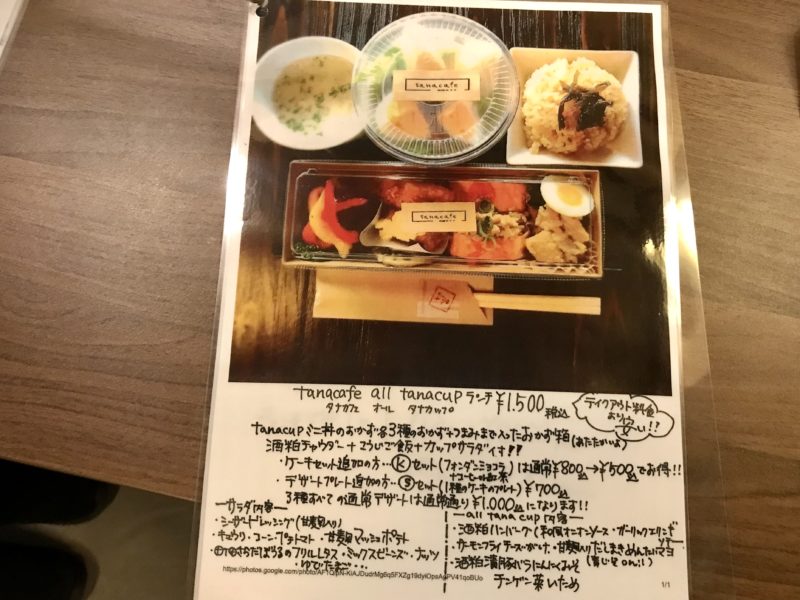 [tanacafe]
[tanacafe]
tanacafe all tanacup ランチ ¥1.500 税込
タナカフェ オール タナカップ
テイクアウト料金
より
安い!!
tanacupミニ丼のおかず各3種のおかず+つまみまで入ったおかず箱(あたたかいよ)
酒粕チャウダー+こうじご飯+カップサラダです!!
・ケーキセット追加の方…Ⓚセット(フォンダンショコラ)は通常¥800→¥500でお得!!
+コーヒーor紅茶
・デザートプレート追加の方…Ⓢセット(1種のケーキのプレート)¥700
3種すべての通常デザートは通常通り¥1.000になります!!
サラダ内容
・シーザードレッシング(甘麹入り)
・キュウリ・コーン・プチトマト・甘麹マッシュポテト
フリルレタス・ミックスビーンズ・ナッツ
ゆでたまご…
all tana cup内容
・酒粕ハンバーグ(和風オニオンソース・ガーリックエリンギ
・サーモンフライチーズソースがけ・甘麹入りだしまきめんたいマヨ
(青じそon!!)
・酒粕漬豚バラにんにくみそ
チンゲン菜いため
1/1